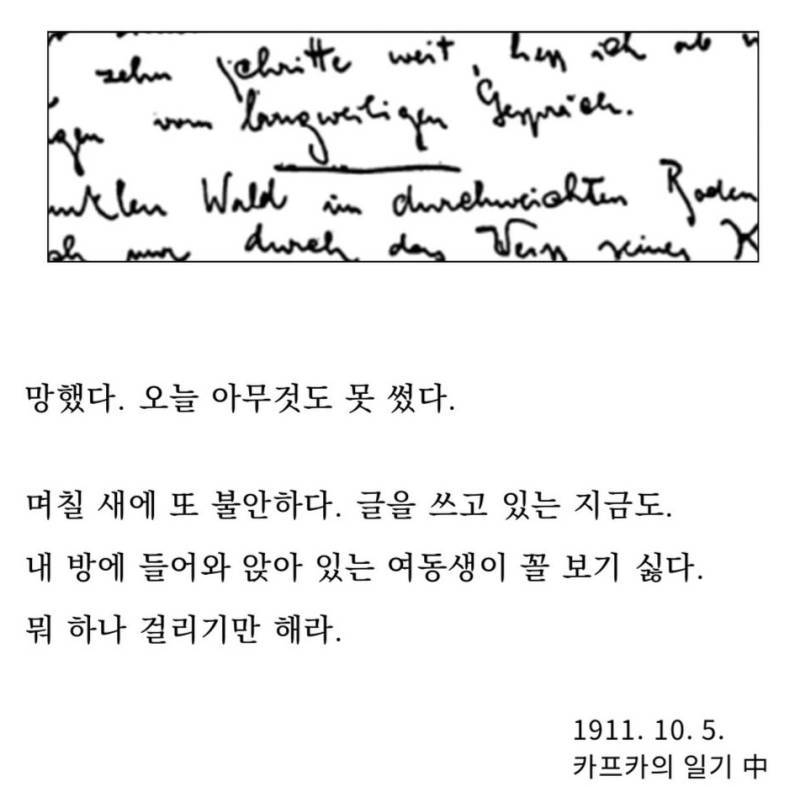 zehn Schritte weit
vom langweiligen Gespräch.
Wald im durchweichten Boden
nur durch das Weiss seines
망했다. 오늘 아무것도 못 썼다.
며칠 새에 또 불안하다. 글을 쓰고 있는 지금도.
내 방에 들어와 앉아 있는 여동생이 꼴 보기 싫다.
뭐 하나 걸리기만 해라.
1911. 10. 5.
카프카의 일기 中